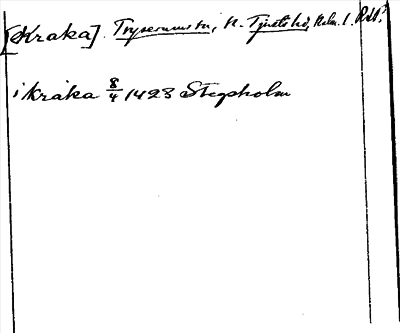 [Kråka]. Tryserums sn, N. Tjusts hd, Kalm. l.
i kraka 8/4 1423 Stegholm